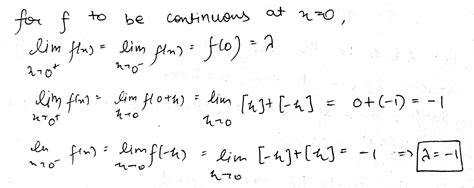 for f to be continuous at x=0,
lim x→0⁺ f(x) = lim x→0⁻ f(x) = f(0) = λ
lim x→0⁺ f(x) = lim h→0 f(0+h) = lim h→0 [h]+[-h] = 0+(-1) = -1
lim x→0⁻ f(x) = lim h→0 f(-h) = lim h→0 [-h]+[h] = -1 => λ=-1